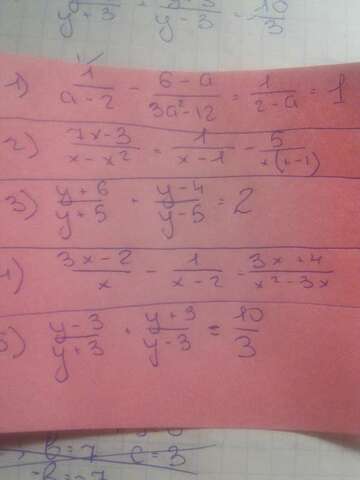 y+3 y-3 3
1) 1/(a-2) - (6-a)/(3a²-12) = 1/(2-a) = 1
2) (7x-3)/(x-x²) = 1/(x-1) - 5/(x(x-1))
3) (y+6)/(y+5) + (y-4)/(y-5) = 2
4) (3x-2)/x - 1/(x-2) = (3x+4)/(x²-3x)
5) (y-3)/(y+3) + (y+3)/(y-3) = 10/3
b=7 c=3